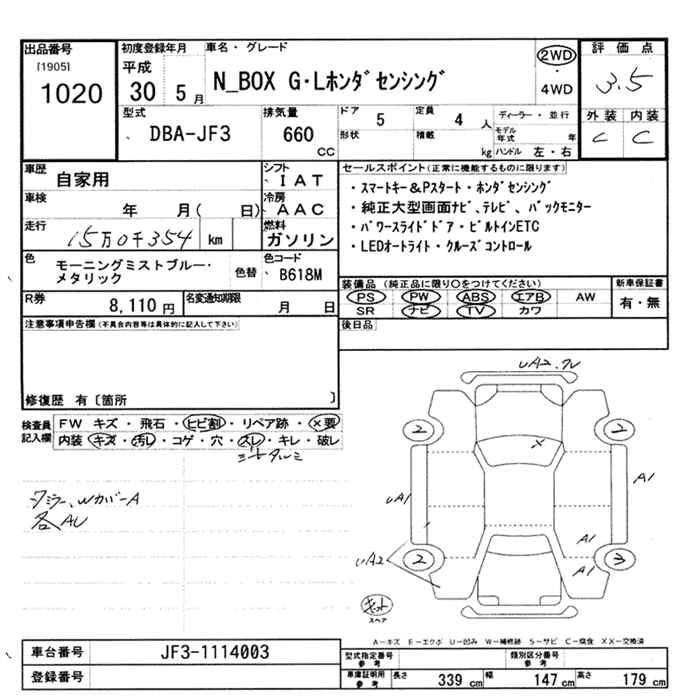 出品番号
[1905]
1020
初度登録年月
平成
30 5月
車名・グレード
N_BOX G・Lホンダセンシング
2WD
・
4WD
評価点
3.5
外装 内装
C C
型式
DBA-JF3
排気量
660
CC
ドア 5
形状
定員 4 人
積載 kg
ディーラー・並行
モデル年式 年
ハンドル 左・右
車歴 自家用
シフト IAT
車検 年 月( 日)
冷房 AAC
走行 15万0千354 km
燃料 ガソリン
色 モーニングミストブルー・
メタリック
色替
色コード
B618M
R券 8,110円
名変通知期限 月 日
セールスポイント(正常に機能するものに限ります)
・スマートキー&Pスタート・ホンダセンシング
・純正大型画面ナビ、テレビ、バックモニター
・パワースライドドア・ビルトインETC
・LEDオートライト・クルーズコントロール
装備品(純正品に限り○をつけてください)
PS PW ABS エアB AW
SR ナビ TV カワ
新車保証書
有・無
後日品
注意事項申告欄(不具合内容等は具体的に記入して下さい)
修復歴 有〔箇所 〕
検査員
記入欄
FW キズ・飛石・ヒビ割・リペア跡・×要
内装 キズ・汚レ・コゲ・穴・スレ・キレ・破レ
シートタルミ
ワミラー、Wカバー A
各AU
UA2.ワレ
2
2
×
UA1
A1
A1
A1
UA2
2
3
キット
スペア
A―キズ E―エクボ U―凹み W―補修跡 S―サビ C―腐食 XX―交換済
車台番号 JF3-1114003
登録番号
型式指定番号
参考
類別区分番号
参考
車庫証明用
参考
長さ 339 cm
幅 147 cm
高さ 179 cm